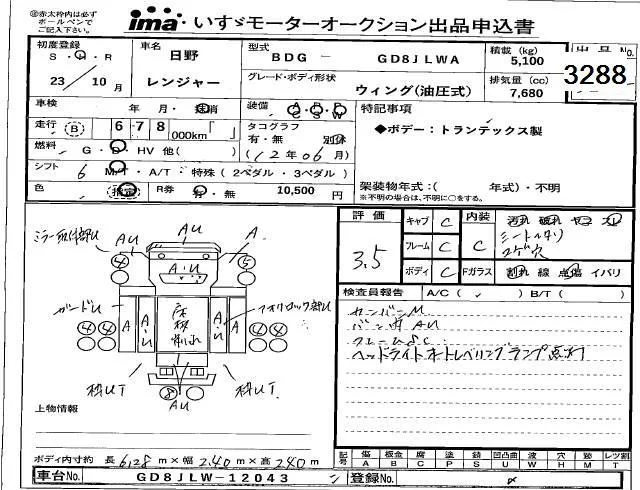 ㊟赤太枠内は必ず
ボールペンで
ご記入下さい。
ima いすゞモーターオークション出品申込書
初度登録
S・H・R
23/10月
車名
日野
レンジャー
型式
BDG － GD8JLWA
グレード・ボディ形状
ウィング(油圧式)
積載 (kg)
5,100
排気量 (cc)
7,680
出品No.
3288
車検 年 月・抹消
走行 B 678,000km「 」
燃料 G・D・HV 他( )
シフト 6 M/T・A/T・特殊(2ペダル・3ペダル)
色 R券 有・無 10,500 円
装備
タコグラフ
有・無 別体
(12年06月)
特記事項
◆ボデー：トランテックス製
架装物年式：( 年式)・不明
※不明の場合は、不明に○をする。
評価
3.5
キャブ C
フレーム C
ボディ C
内装
C
Fガラス
汚れ 破れ ヤニ スレ
ミートルタリ
コゲ穴
割れ 線 点傷 イバリ
検査員報告 A/C( ) B/T( )
カンバンM
バン内AU
フレームSC
ヘッドライトオートレベリングランプ点灯
AU
AU
A
AU
④
⑤
ガードU
A
AU
床板
割れ
AU
A
④④
④④
枠UT
枠UT
⑧
AU
上物情報
ボディ内寸約 長 6.28m×幅 2.40m×高 2.40m
記号
傷 A
板金 B
腐 C
塗 P
錆 S
凹凸曲 U
波 W
穴 H
跡 M
レツ割 T
車台No. GD8JLW-12043
登録No.